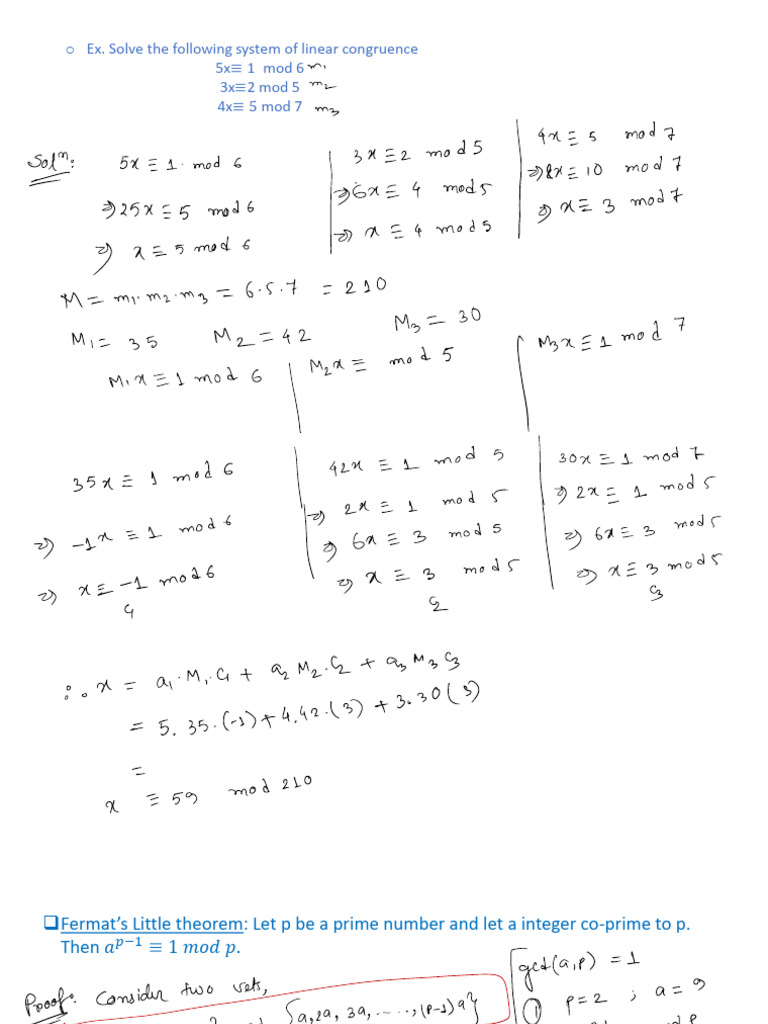 ○ Ex. Solve the following system of linear congruence
5x≡ 1 mod 6 m₁
3x≡2 mod 5 m₂
4x≡ 5 mod 7 m₃
Solⁿ:
5x ≡ 1 mod 6
⇒ 25x ≡ 5 mod 6
⇒ x ≡ 5 mod 6
3x ≡ 2 mod 5
⇒ 6x ≡ 4 mod 5
⇒ x ≡ 4 mod 5
4x ≡ 5 mod 7
⇒ 8x ≡ 10 mod 7
⇒ x ≡ 3 mod 7
M = m₁·m₂·m₃ = 6·5·7 = 210
M₁ = 35 M₂ = 42 M₃ = 30
M₁x ≡ 1 mod 6
M₂x ≡ mod 5
M₃x ≡ 1 mod 7
35x ≡ 1 mod 6
⇒ -1x ≡ 1 mod 6
⇒ x ≡ -1 mod 6
C₁
42x ≡ 1 mod 5
⇒ 2x ≡ 1 mod 5
⇒ 6x ≡ 3 mod 5
⇒ x ≡ 3 mod 5
C₂
30x ≡ 1 mod 7
⇒ 2x ≡ 1 mod 5
⇒ 6x ≡ 3 mod 5
⇒ x ≡ 3 mod 5
C₃
∴ x = a₁·M₁·C₁ + a₂M₂·C₂ + a₃M₃C₃
= 5.35.(-1) + 4.42.(3) + 3.30(3)
=
x ≡ 59 mod 210
❑Fermat's Little theorem: Let p be a prime number and let a integer co-prime to p.
Then aᵖ⁻¹ ≡ 1 mod p.
Proof: Consider two sets,
{a, 2a, 3a, ....., (p-1)a}
gcd(a,p) = 1
① p=2 ; a=9